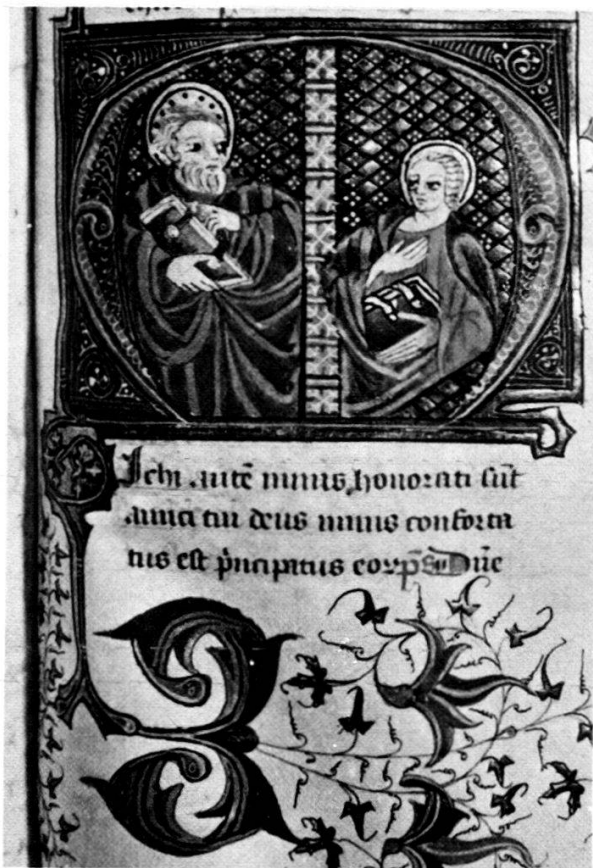 Ichi autē nimis honorati sūt
amici tui deus nimis conforta
tus est p̄ncipatus eorp̄s Dn̄e